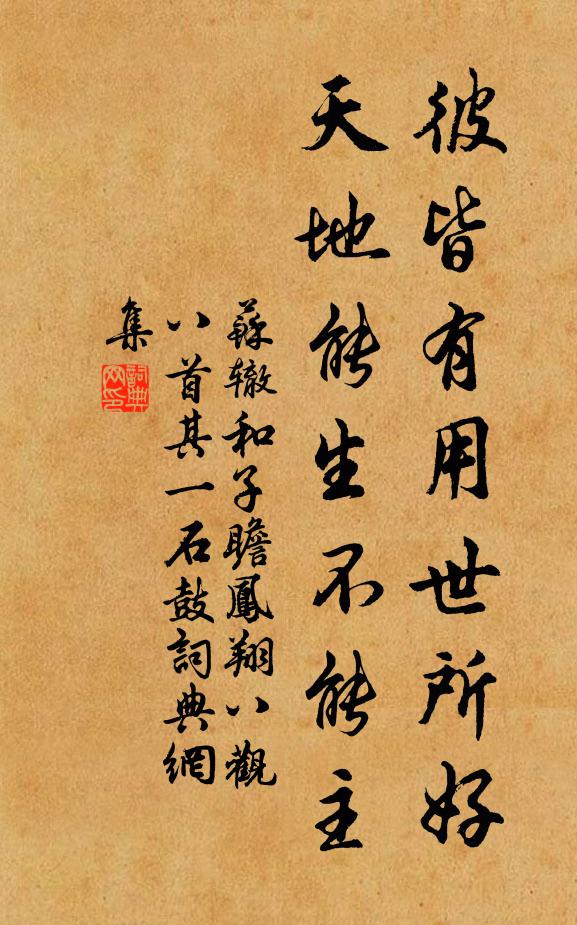 彼皆有用世所好
天地能生不能主
蘇辙和子瞻鳳翔八觀
八首其一石鼓詞典網
集
詞典
网印